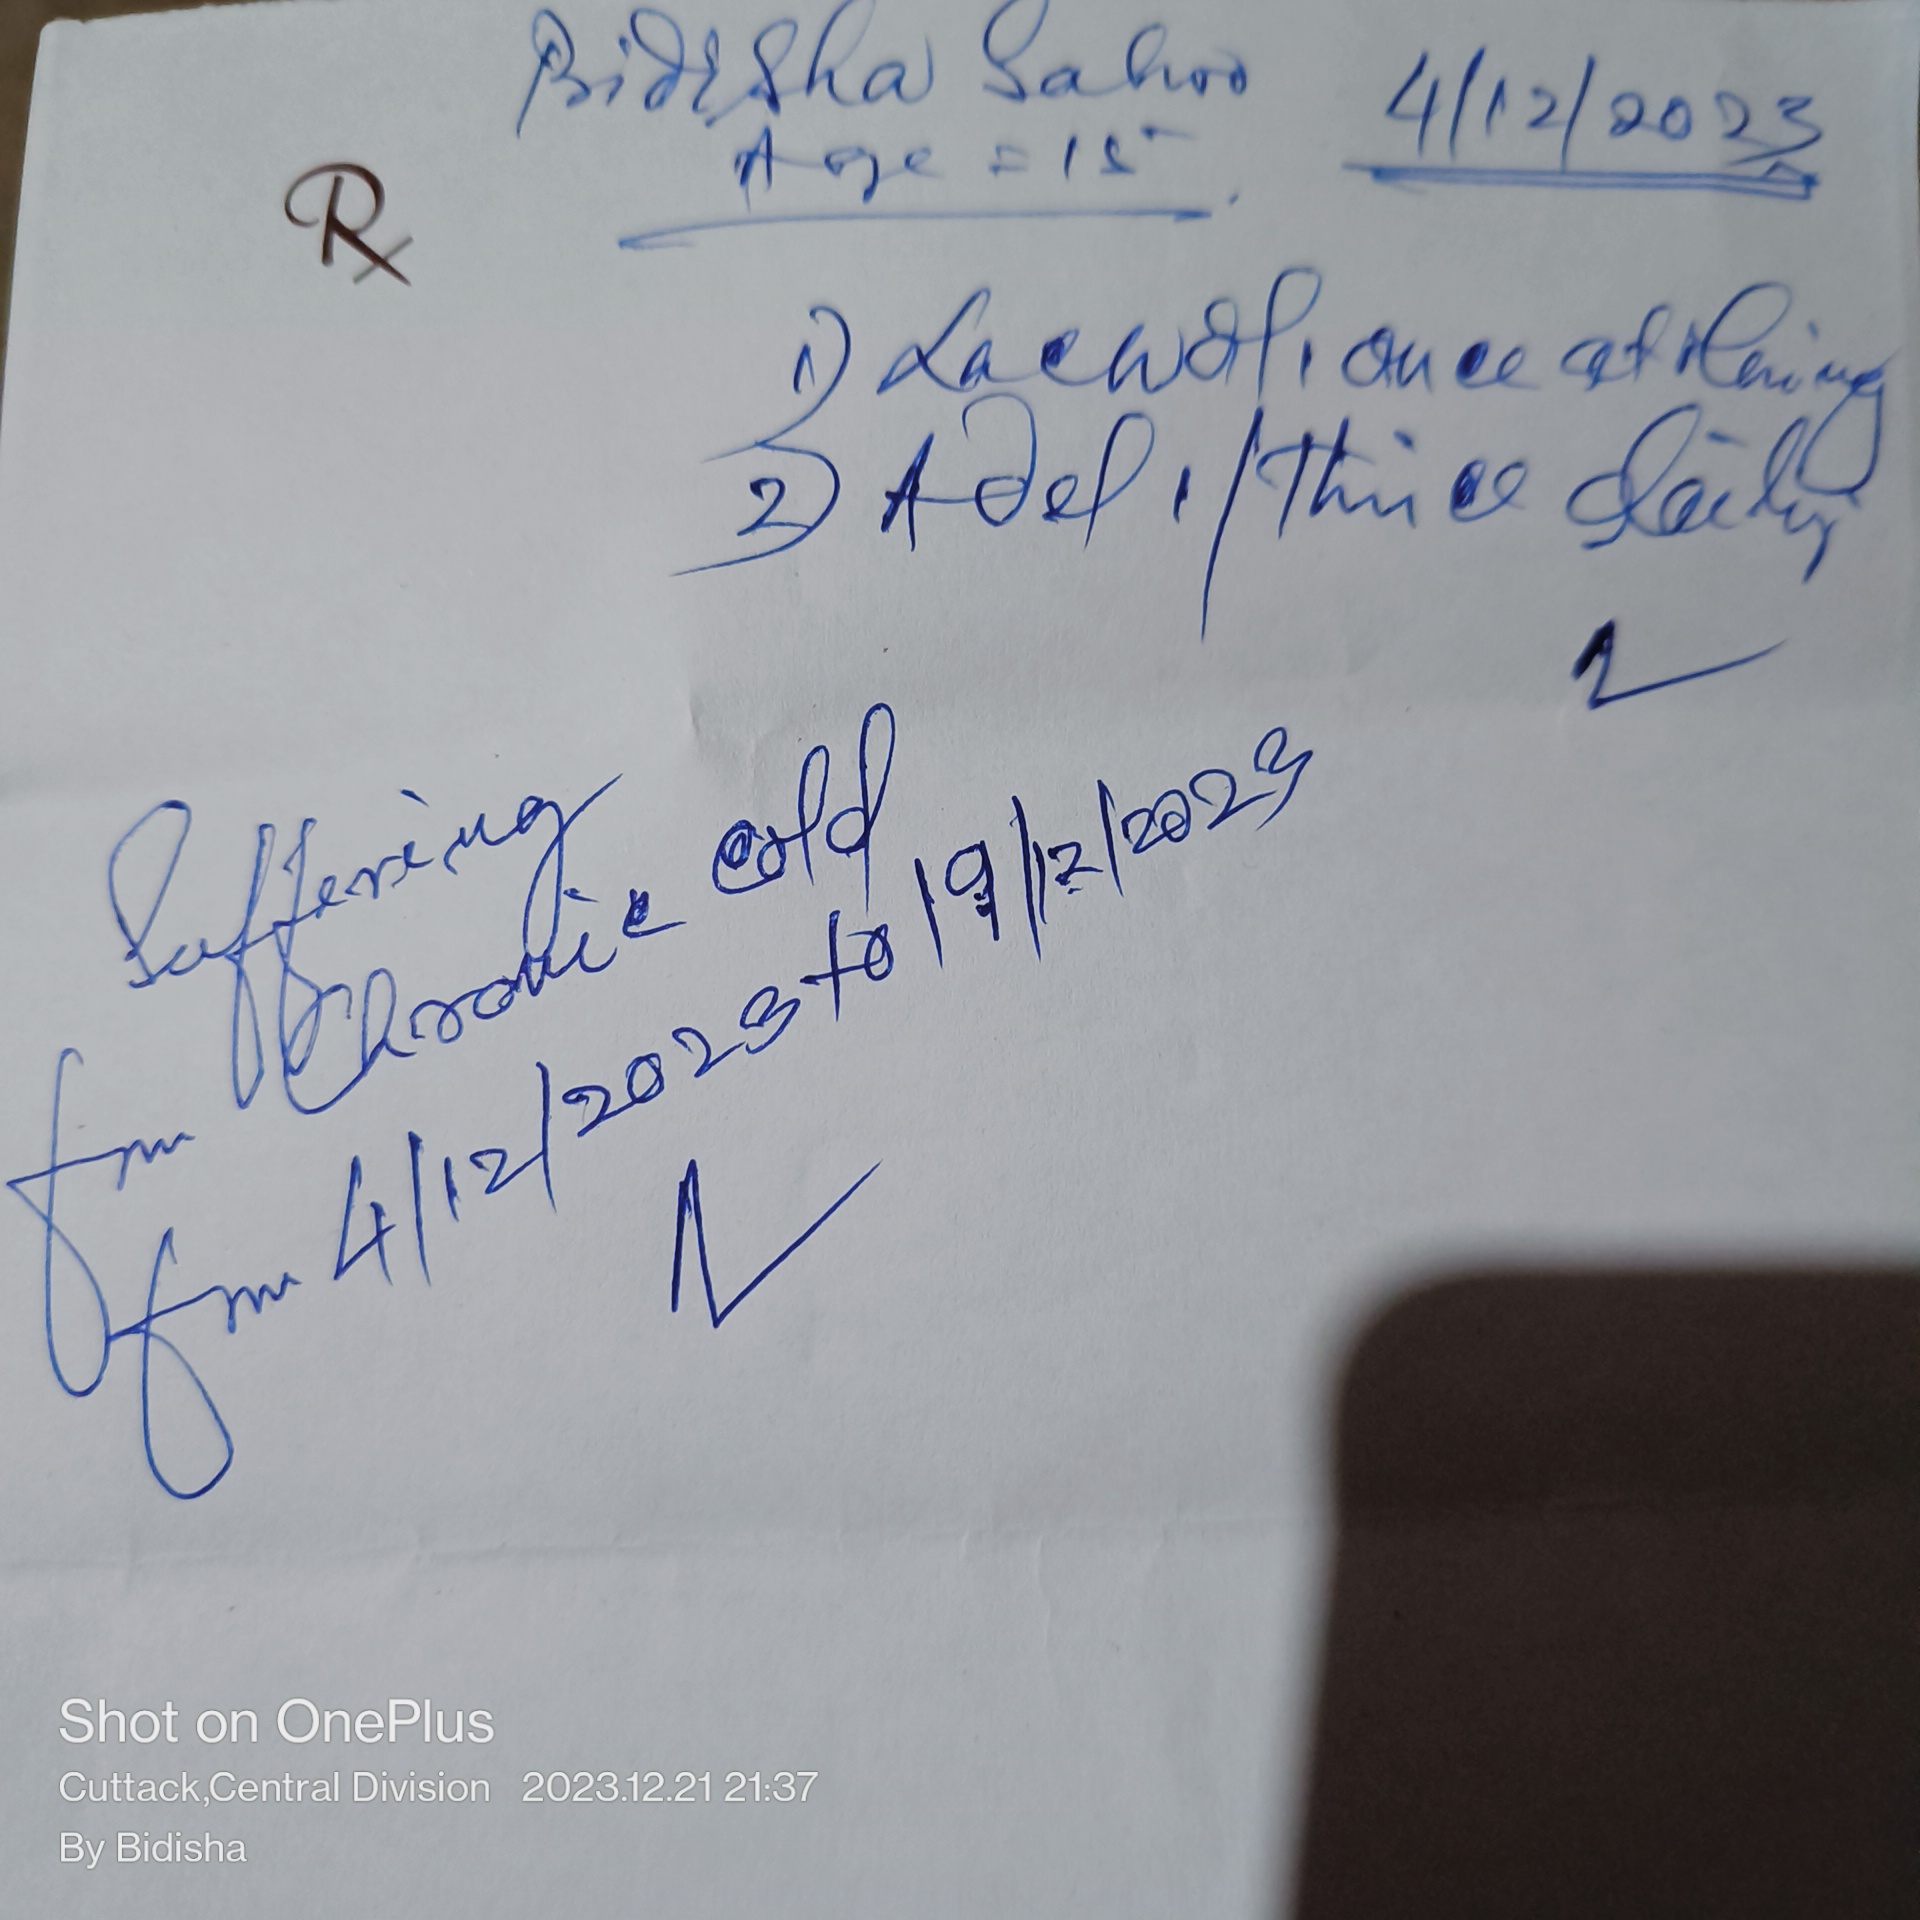 Bidisha Sahoo
4/12/2023
Age = 15
Rx
1) once at
2) Adel 1/Thrice daily
Suffering
from Chronic cold
from 4/12/2023 to 19/12/2023
Shot on OnePlus
Cuttack,Central Division 2023.12.21 21:37
By Bidisha